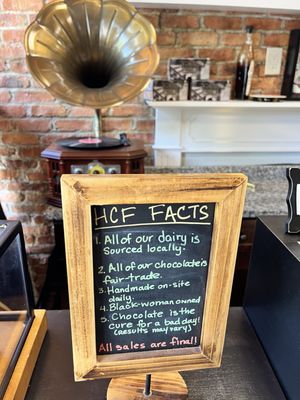 HCF FACTS
1. All of our dairy is
sourced locally.
2. All of our chocolate is
fair-trade.
3. Handmade on-site
daily.
4. Black-woman owned
5. Chocolate is the
cure for a bad day!
(results may vary)
All sales are final!